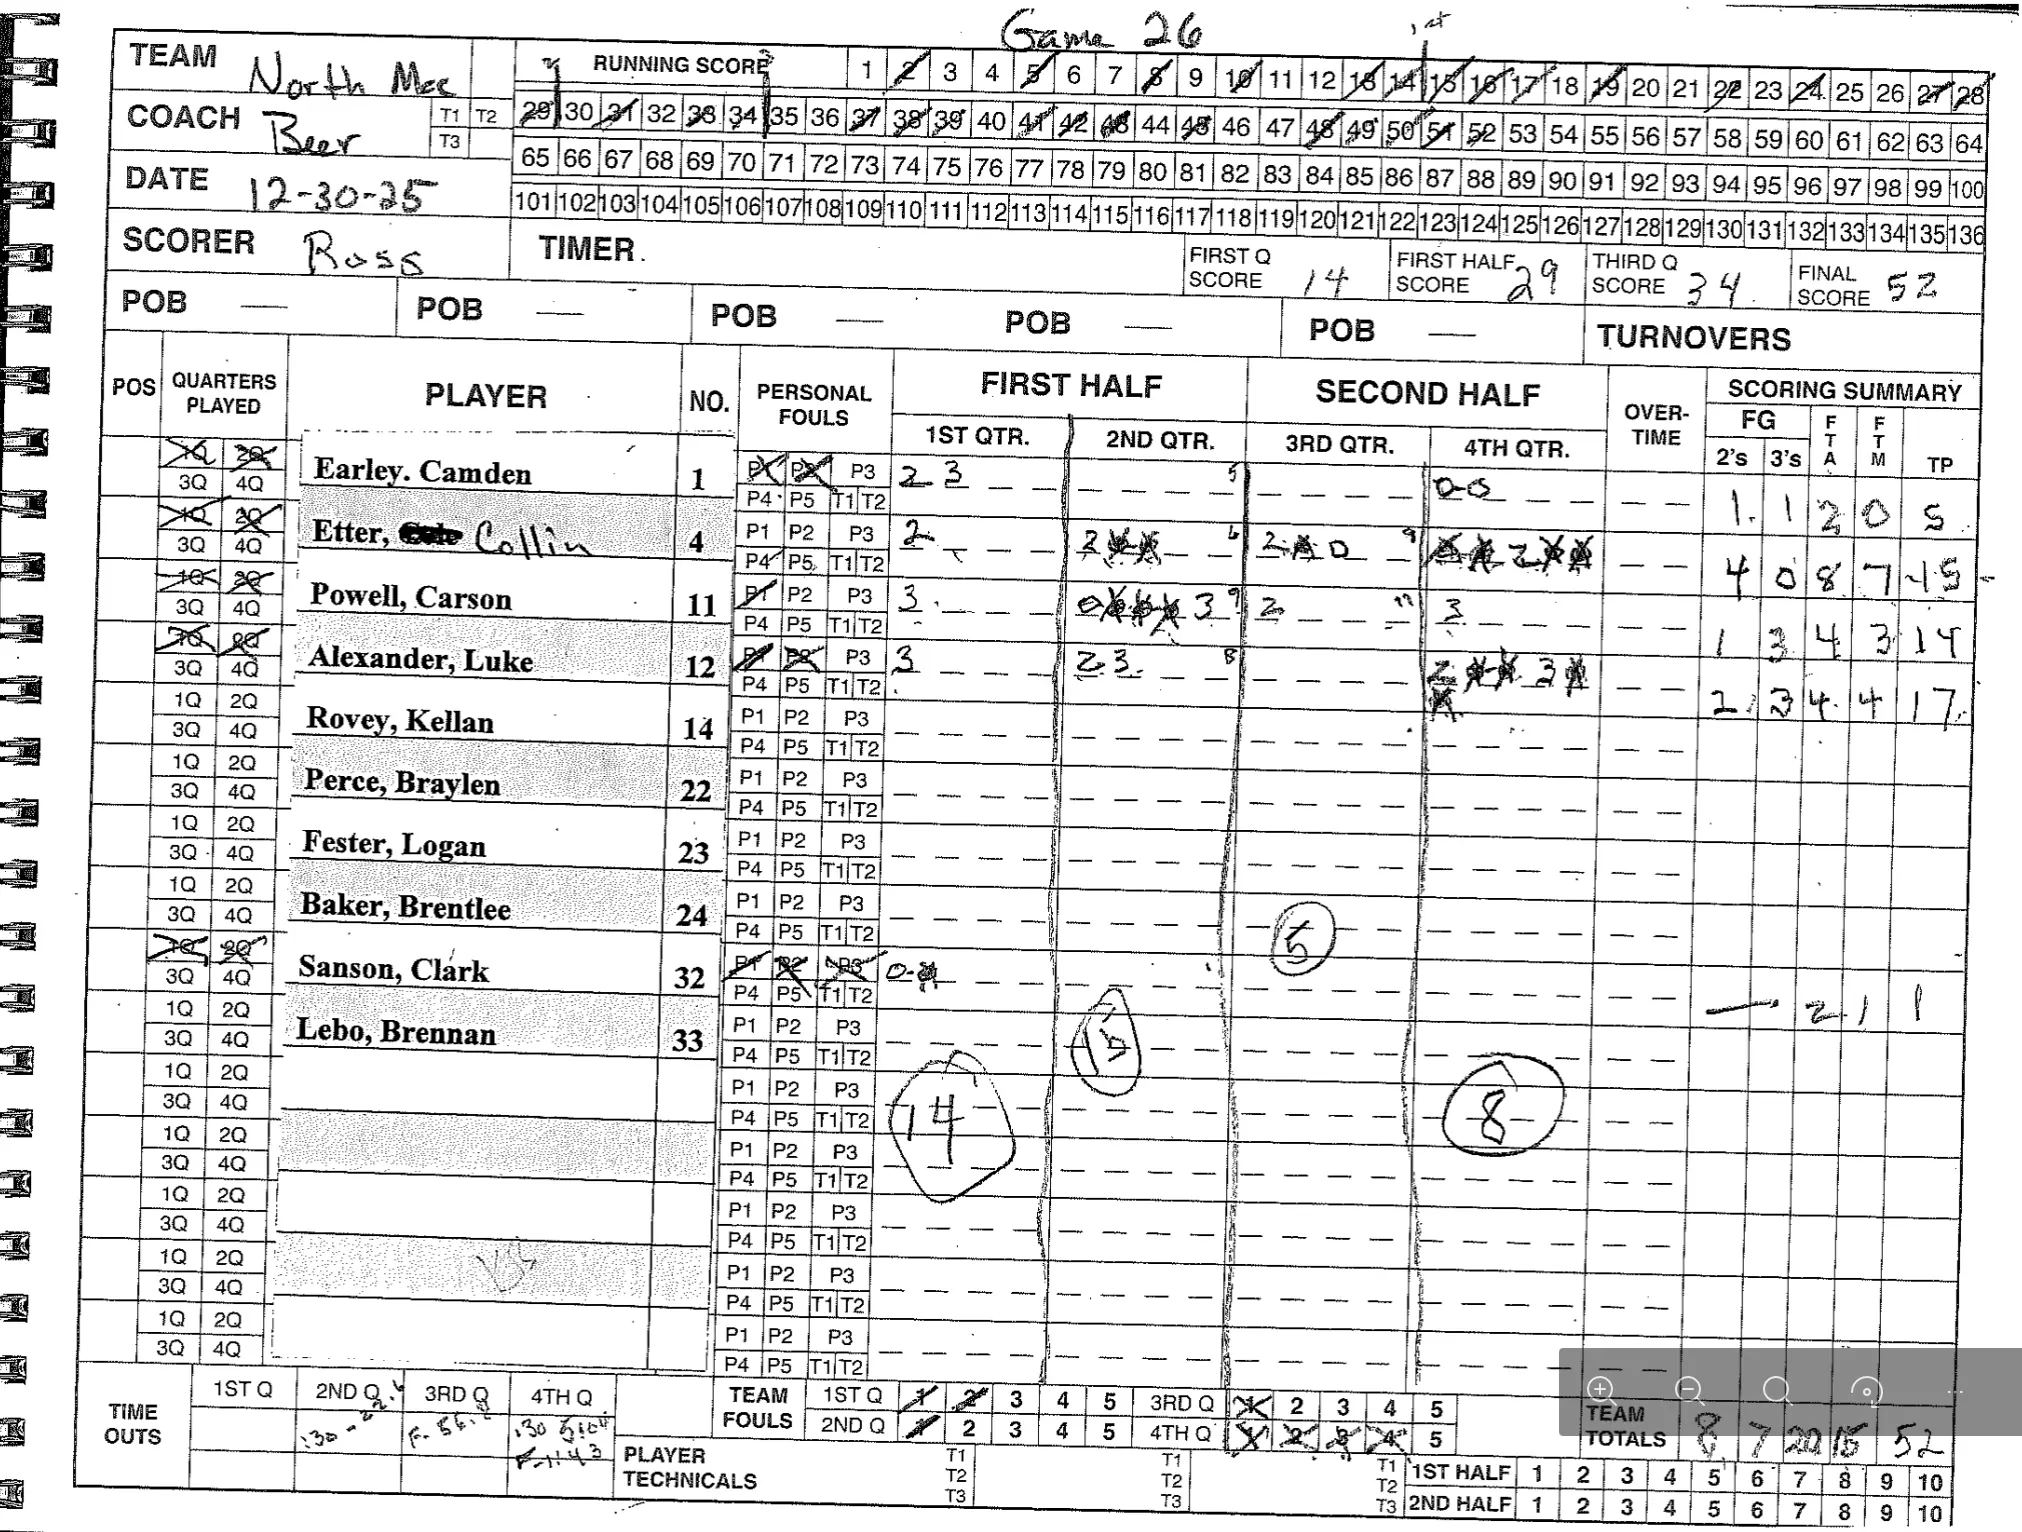 Game 26
1st
TEAM North Mac
RUNNING SCORE 1 2 3 4 5 6 7 8 9 10 11 12 13 14 15 16 17 18 19 20 21 22 23 24 25 26 27 28
COACH Beer T1 T2 T3
29 30 31 32 33 34 35 36 37 38 39 40 41 42 43 44 45 46 47 48 49 50 51 52 53 54 55 56 57 58 59 60 61 62 63 64
65 66 67 68 69 70 71 72 73 74 75 76 77 78 79 80 81 82 83 84 85 86 87 88 89 90 91 92 93 94 95 96 97 98 99 100
DATE 12-30-25
101 102 103 104 105 106 107 108 109 110 111 112 113 114 115 116 117 118 119 120 121 122 123 124 125 126 127 128 129 130 131 132 133 134 135 136
SCORER Ross TIMER
FIRST Q SCORE 14 FIRST HALF SCORE 29 THIRD Q SCORE 34 FINAL SCORE 52
POB — POB — POB — POB — POB — TURNOVERS
POS QUARTERS PLAYED PLAYER NO. PERSONAL FOULS FIRST HALF SECOND HALF OVER-TIME SCORING SUMMARY
1ST QTR. 2ND QTR. 3RD QTR. 4TH QTR. FG 2's 3's FTA FTM TP
1Q 2Q Earley. Camden 1 P1 P2 P3 2 3 5 0 0 1 1 2 0 5
3Q 4Q P4 P5 T1 T2
1Q 2Q Etter, Collin 4 P1 P2 P3 2 2 6 2 0 9 2 4 0 8 7 15
3Q 4Q P4 P5 T1 T2
1Q 2Q Powell, Carson 11 P1 P2 P3 3 0 3 9 2 11 3 1 3 4 3 14
3Q 4Q P4 P5 T1 T2
1Q 2Q Alexander, Luke 12 P1 P2 P3 3 2 3 8 2 3 2 3 4 4 17
3Q 4Q P4 P5 T1 T2
1Q 2Q Rovey, Kellan 14 P1 P2 P3
3Q 4Q P4 P5 T1 T2
1Q 2Q Perce, Braylen 22 P1 P2 P3
3Q 4Q P4 P5 T1 T2
1Q 2Q Fester, Logan 23 P1 P2 P3
3Q 4Q P4 P5 T1 T2
1Q 2Q Baker, Brentlee 24 P1 P2 P3
3Q 4Q P4 P5 T1 T2 5
1Q 2Q Sanson, Clark 32 P1 P2 P3 0 — 2 1 1
3Q 4Q P4 P5 T1 T2
1Q 2Q Lebo, Brennan 33 P1 P2 P3 15
3Q 4Q P4 P5 T1 T2
1Q 2Q P1 P2 P3
3Q 4Q P4 P5 T1 T2 14 8
1Q 2Q P1 P2 P3
3Q 4Q P4 P5 T1 T2
1Q 2Q P1 P2 P3
3Q 4Q P4 P5 T1 T2
1Q 2Q P1 P2 P3
3Q 4Q P4 P5 T1 T2
1Q 2Q P1 P2 P3
3Q 4Q P4 P5 T1 T2
TIME OUTS 1ST Q 2ND Q 3RD Q 4TH Q
TEAM FOULS 1ST Q 1 2 3 4 5 3RD Q 1 2 3 4 5
2ND Q 1 2 3 4 5 4TH Q 1 2 3 4 5
TEAM TOTALS 8 7 20 15 52
PLAYER TECHNICALS T1 T2 T3 T1 T2 T3 T1 T2 T3
1ST HALF 1 2 3 4 5 6 7 8 9 10
2ND HALF 1 2 3 4 5 6 7 8 9 10